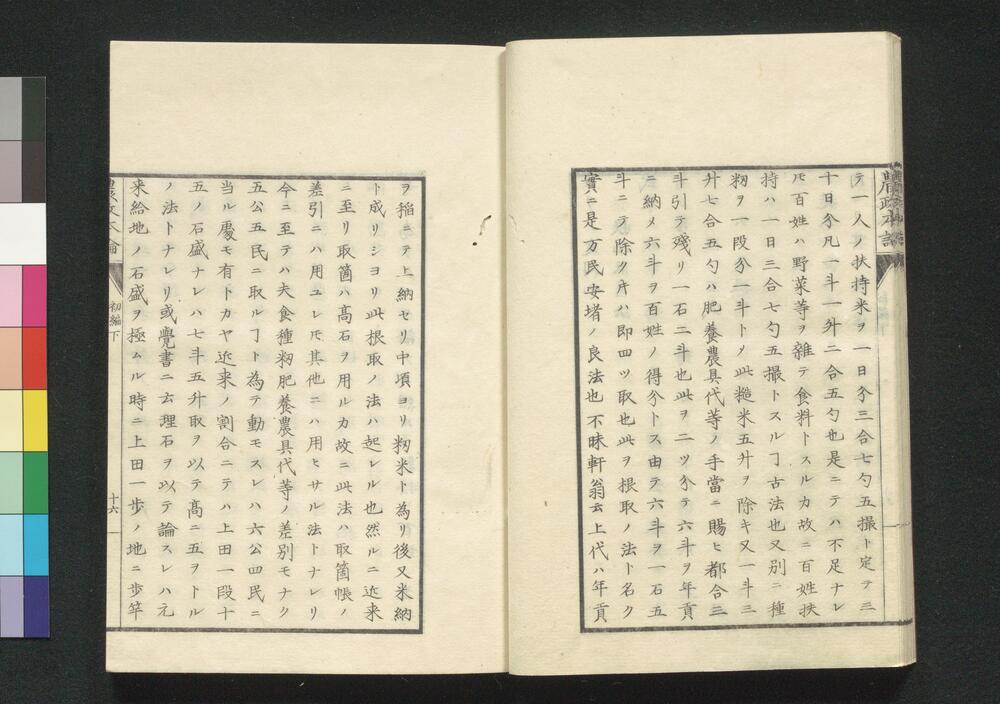 テ一人ノ扶持米ヲ一日分三合七勺五撮ト定テ三
十日分凡一斗一升二合五勺也是ニテハ不足ナレ
𪜈百姓ハ野菜等ヲ雜テ食料トスルカ故ニ百姓扶
持ハ一日三合七勺五撮トスルヿ古法也又別ニ種
籾ヲ一段分一斗トメ此糙米五升ヲ除キ又一斗三
升七合五勺ハ肥養農具代等ノ手當ニ賜ヒ都合三
斗引テ殘リ一石二斗也此ヲ二ツ分テ六斗ヲ年貢
ニ納メ六斗ヲ百姓ノ得分トス由テ六斗ヲ一石五
斗ニテ除ク片ハ即四ツ取也此ヲ根取ノ法ト名ク
實ニ是万民安堵ノ良法也不昧軒翁云上代ハ年貢
ヲ稲ニテ上納セリ中頃ヨリ籾米ト為リ後又米納
ト成リシヨリ此根取ノ法ハ起レル也然ルニ近来
ニ至リ取箇ハ髙石ヲ用ルカ故ニ此法ハ取箇帳ノ
差引ニハ用ユレ𪜈其他ニハ用ヒサル法トナレリ
今ニ至テハ夫食種籾肥養農具代等ノ差別モナク
五公五民ニ取ルヿト為テ動モスレハ六公四民ニ
当ル處モ有トカヤ近来ノ割合ニテハ上田一段十
五ノ石盛ナレハ七斗五升取ヲ以テ髙ニ五ヲトル
ノ法トナレリ或覺書ニ云理石ヲ以テ論スレハ元
来給地ノ石盛ヲ極ムル時ニ上田一歩ノ地ニ歩竿
初編下
十六